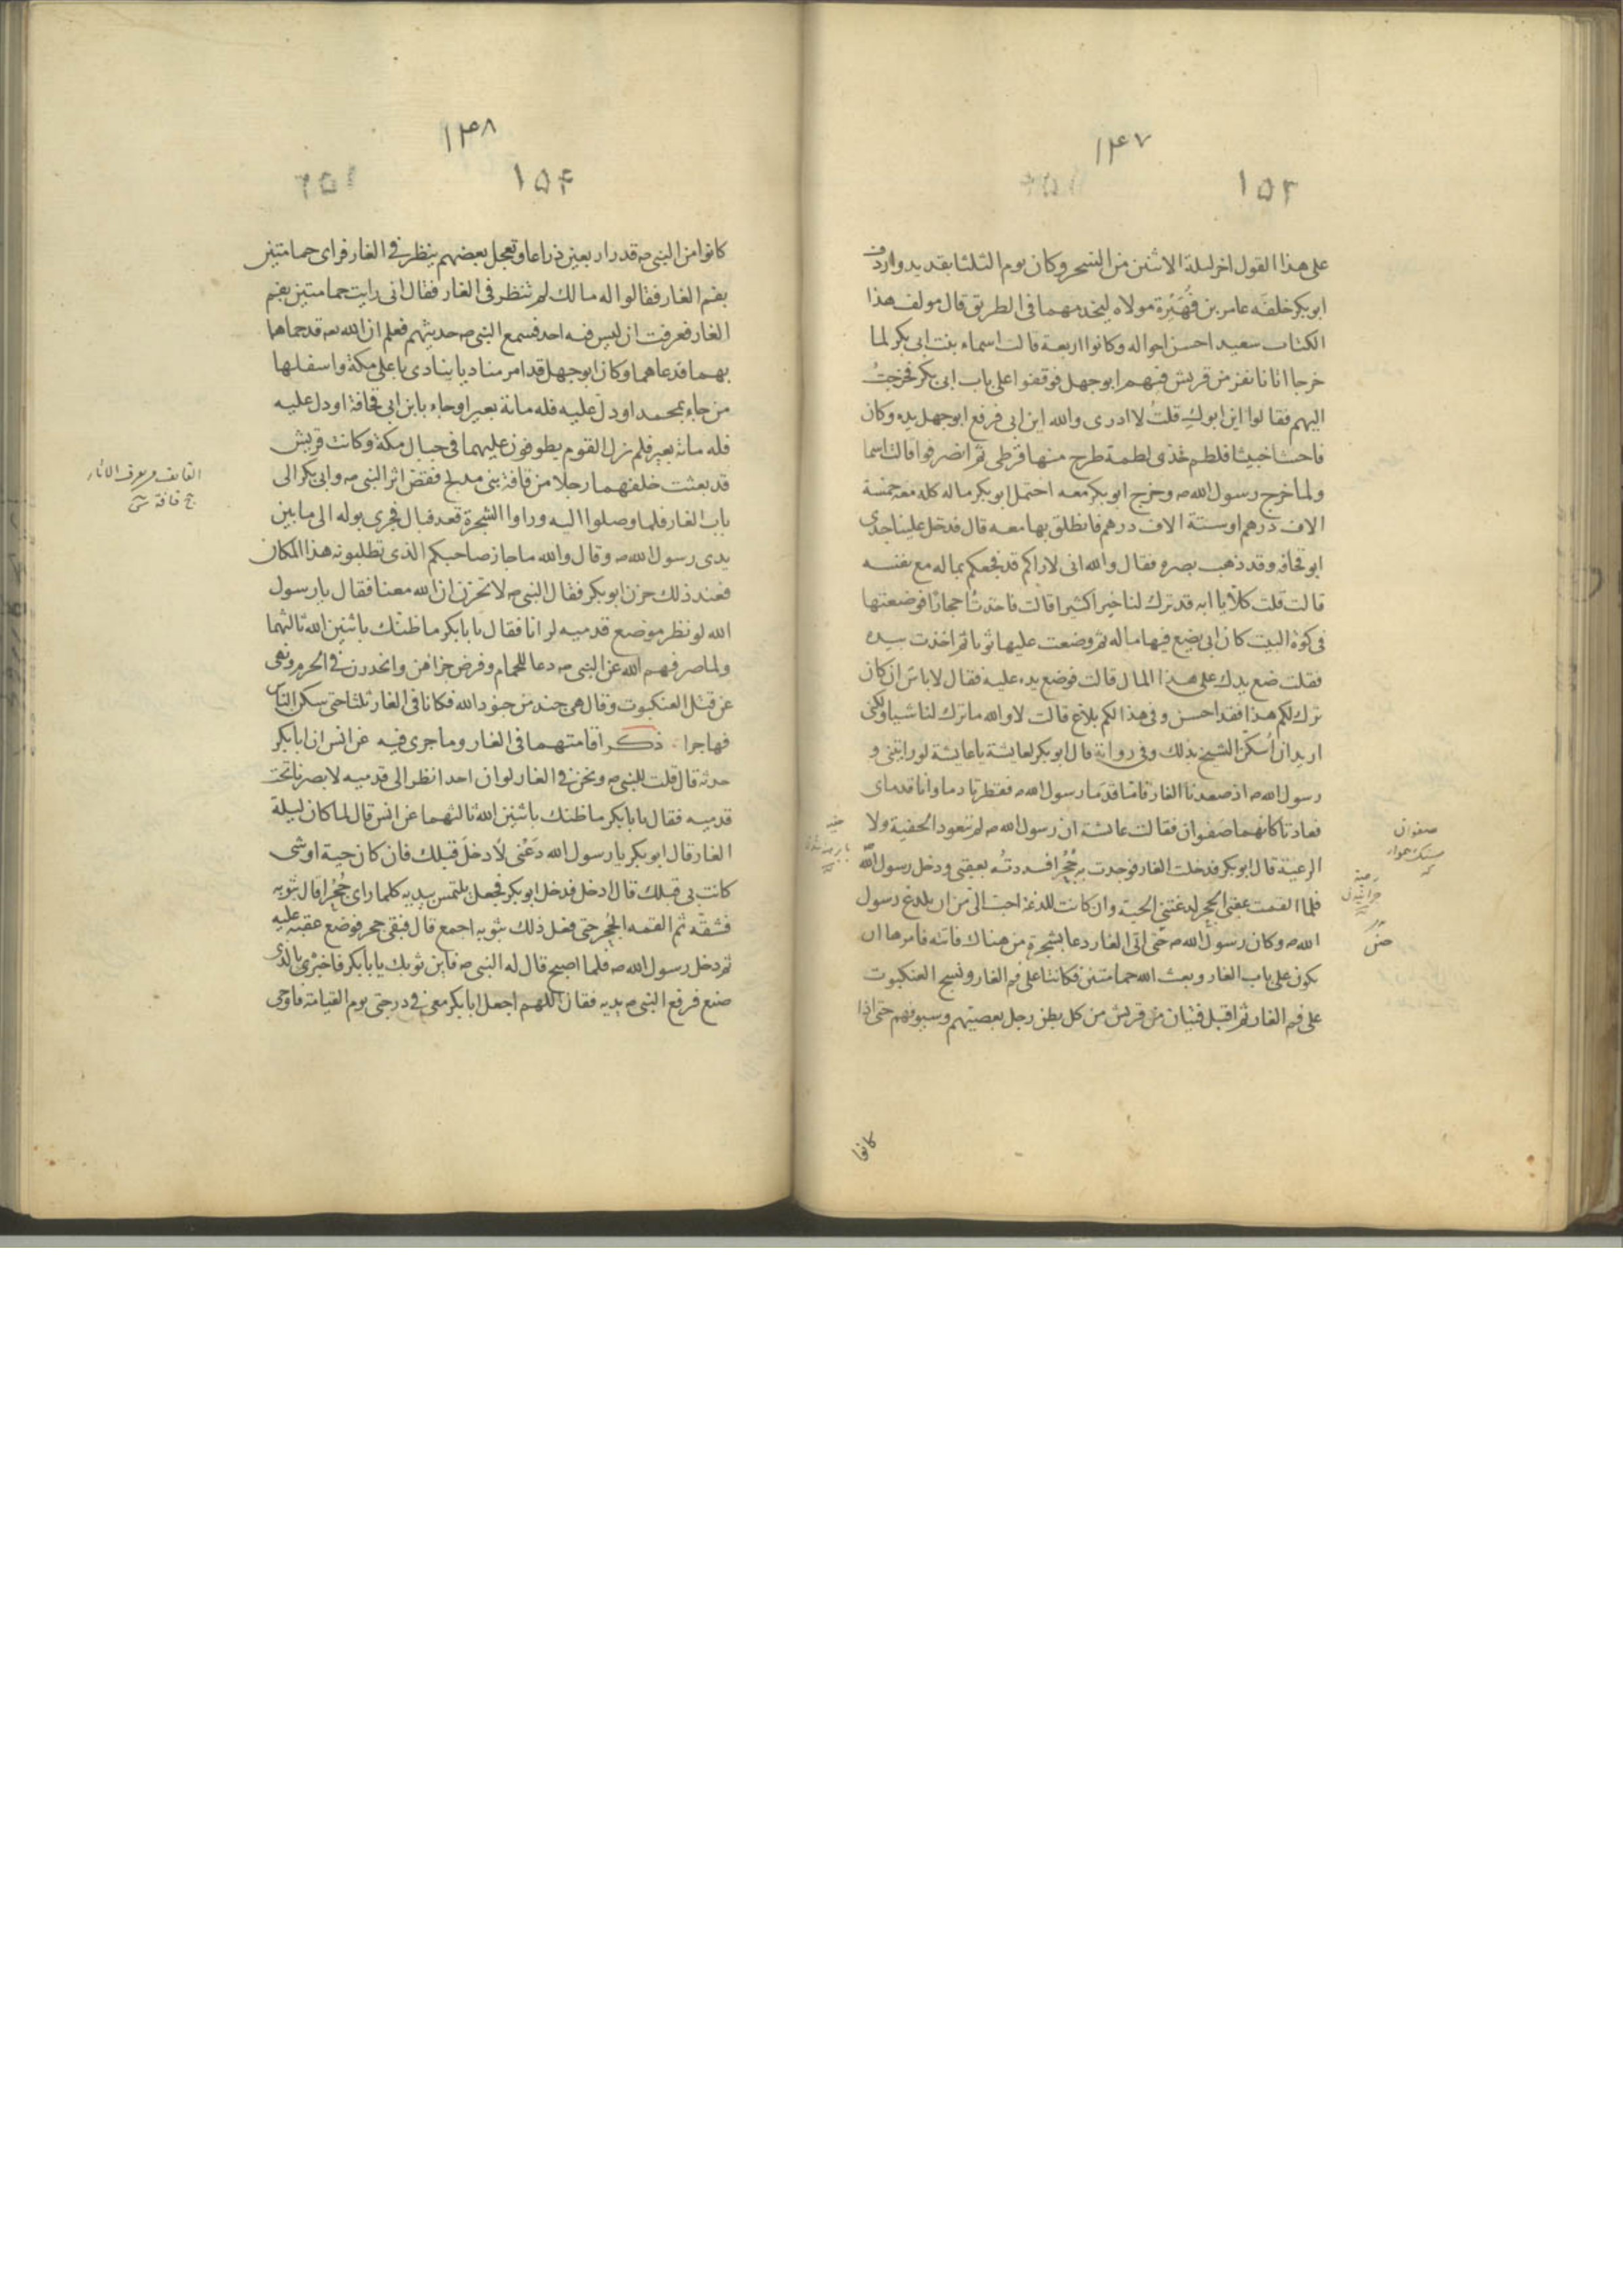 ١٤٧
١٥٣
على هذا القول اخر ليلة الاثنين من السحر وكان يوم الثلثا بقديد واردف
ابو بكر خلفه عامر بن فُهَيْرة مولاه ليخدمهما فى الطريق قال مولف هذا
الكتاب سعيد احسن احواله وكانوا اربعة قالت اسماء بنت ابى بكر لما
خرجا اتانا نفر من قريش فيهم ابو جهل فوقفوا على باب ابى بكر فخرجتُ
اليهم فقالوا اين ابوكِ قلتُ لا ادرى والله اين ابى فرفع ابو جهل يده وكان
فاحشا خبيثا فلطم خدى لطمة طرح منها قرطى ثم انصرفوا قالت اسما
ولما خرج رسول الله ص وخرج ابو بكر معه احتمل ابو بكر ماله كله معه خمسة
الاف درهم او ستة الاف درهم فانطلق بها معه قال فدخل علينا جدى
ابو قحافه وقد ذهب بصره فقال والله انى لاراكم قد فجعكم بماله مع نفسه
قالت قلت كلا يا ابه قد ترك لنا خيرا كثيرا قالت فاخذتُ احجارًا فوضعتها
فى كوة البيت كان ابى يضع فيها ماله ثم وضعت عليها ثوبا ثم اخذت بيده
فقلت ضع يدك على هذا المال قالت فوضع يده عليه فقال لا باس ان كان
ترك لكم هذا فقد احسن وفى هذا لكم بلاغ قالت لا والله ما ترك لنا شيا ولكنى
اريد ان اُسكن الشيخ بذلك وفى رواية قال ابو بكر لعايشة يا عايشة لو رايتنى و
رسول الله ص اذ صعدنا الغار فامّا قدَما رسول الله ص فقطرتا دما وانا قدماى
فعادتا كانهما صفوان فقالت عائشة ان رسول الله ص لم يتعود الحفية ولا
الرعية قال ابو بكر فدخلت الغار فوجدت به جُحْرا فسددتُه بعقبى ودخل رسول الله
فلما القمت عقبى الجحر لدغتنى الحية وان كانت للدغة احب الى من ان يلدغ رسول
الله ص وكان رسول الله ص حتى اتى الغار دعا بشجرة من هناك فاتته فامرها ان
يكون على باب الغار وبعث الله حمامتين فكانتا على فم الغار ونسج العنكبوت
على فم الغار ثم اقبل فتيان من قريش من كل بطن رجل بعصيتهم وسيوفهم حتى اذا
كانوا
صفوان
١٤٨
١٥٤
كانوا من النبى ص قدر اربعين ذراعا وتعجل بعضهم ينظر فى الغار فراى حمامتين
بفم الغار فقالوا له ما لك لم تنظر فى الغار فقال انى رايت حمامتين بفم
الغار فعرفت ان ليس فيه احد فسمع النبى ص حديثهم فعلم ان الله تعه قد حماها
بهما فدعا لهما وكان ابو جهل قد امر مناديا ينادى باعلى مكة واسفلها
من جاء بمحمد او دل عليه فله مائة بعير او جاء بابن ابى قحافة او دل عليه
فله مائة بعير فلم يزل القوم يطوفون عليهما فى جبال مكة وكانت قريش
قد بعثت خلفهما رجلا من قافة بنى مدلج فقض اثر النبى ص وابى بكر الى
باب الغار فلما وصلوا اليه وراوا الشجرة قعد فبال فجرى بوله الى ما بين
يدى رسول الله ص وقال والله ما جاز صاحبكم الذى تطلبونه هذا المكان
فعند ذلك حزن ابو بكر فقال النبى ص لا تحزن ان الله معنا فقال يا رسول
الله لو نظر موضع قدميه لرانا فقال يا با بكر ما ظنك باثنين الله ثالثهما
ولما صرفهم الله عن النبى ص دعا للحمام وفرض جزاهن وانحدرن فى الحرم ونهى
عن قتل العنكبوت وقال هى جند من جنود الله فكانا فى الغار ثلثا حتى سكن الناس
فهاجرا ۰ ذكر اقامتهما فى الغار وما جرى فيه عن انس ان ابا بكر
حدثه قال قلت للنبى ص ونحن فى الغار لو ان احدا نظر الى قدميه لابصرنا تحت
قدميه فقال يا با بكر ما ظنك باثنين الله ثالثهما عن انس قال لما كان ليلة
الغار قال ابو بكر يا رسول الله دَعْنى لادخلَ قبلك فان كان حية او شى
كانت بى قبلك قال ادخل فدخل ابو بكر فجعل يلتمس بيديه كلما راى جُحْرا قال بثوبه
فشقّه ثم القمه الجُحر حتى فعل ذلك بثوبه اجمع قال فبقى جحر فوضع عقبَه عليه
ثم دخل رسول الله ص فلما اصبح قال له النبى ص فاين ثوبك يا با بكر فاخبره بالذى
صنع فرفع النبى ص يديه فقال اللهم اجعل ابا بكر معى فى درجتى يوم القيامة فاوحى
القايف من يعرف الاثار
ج قافة